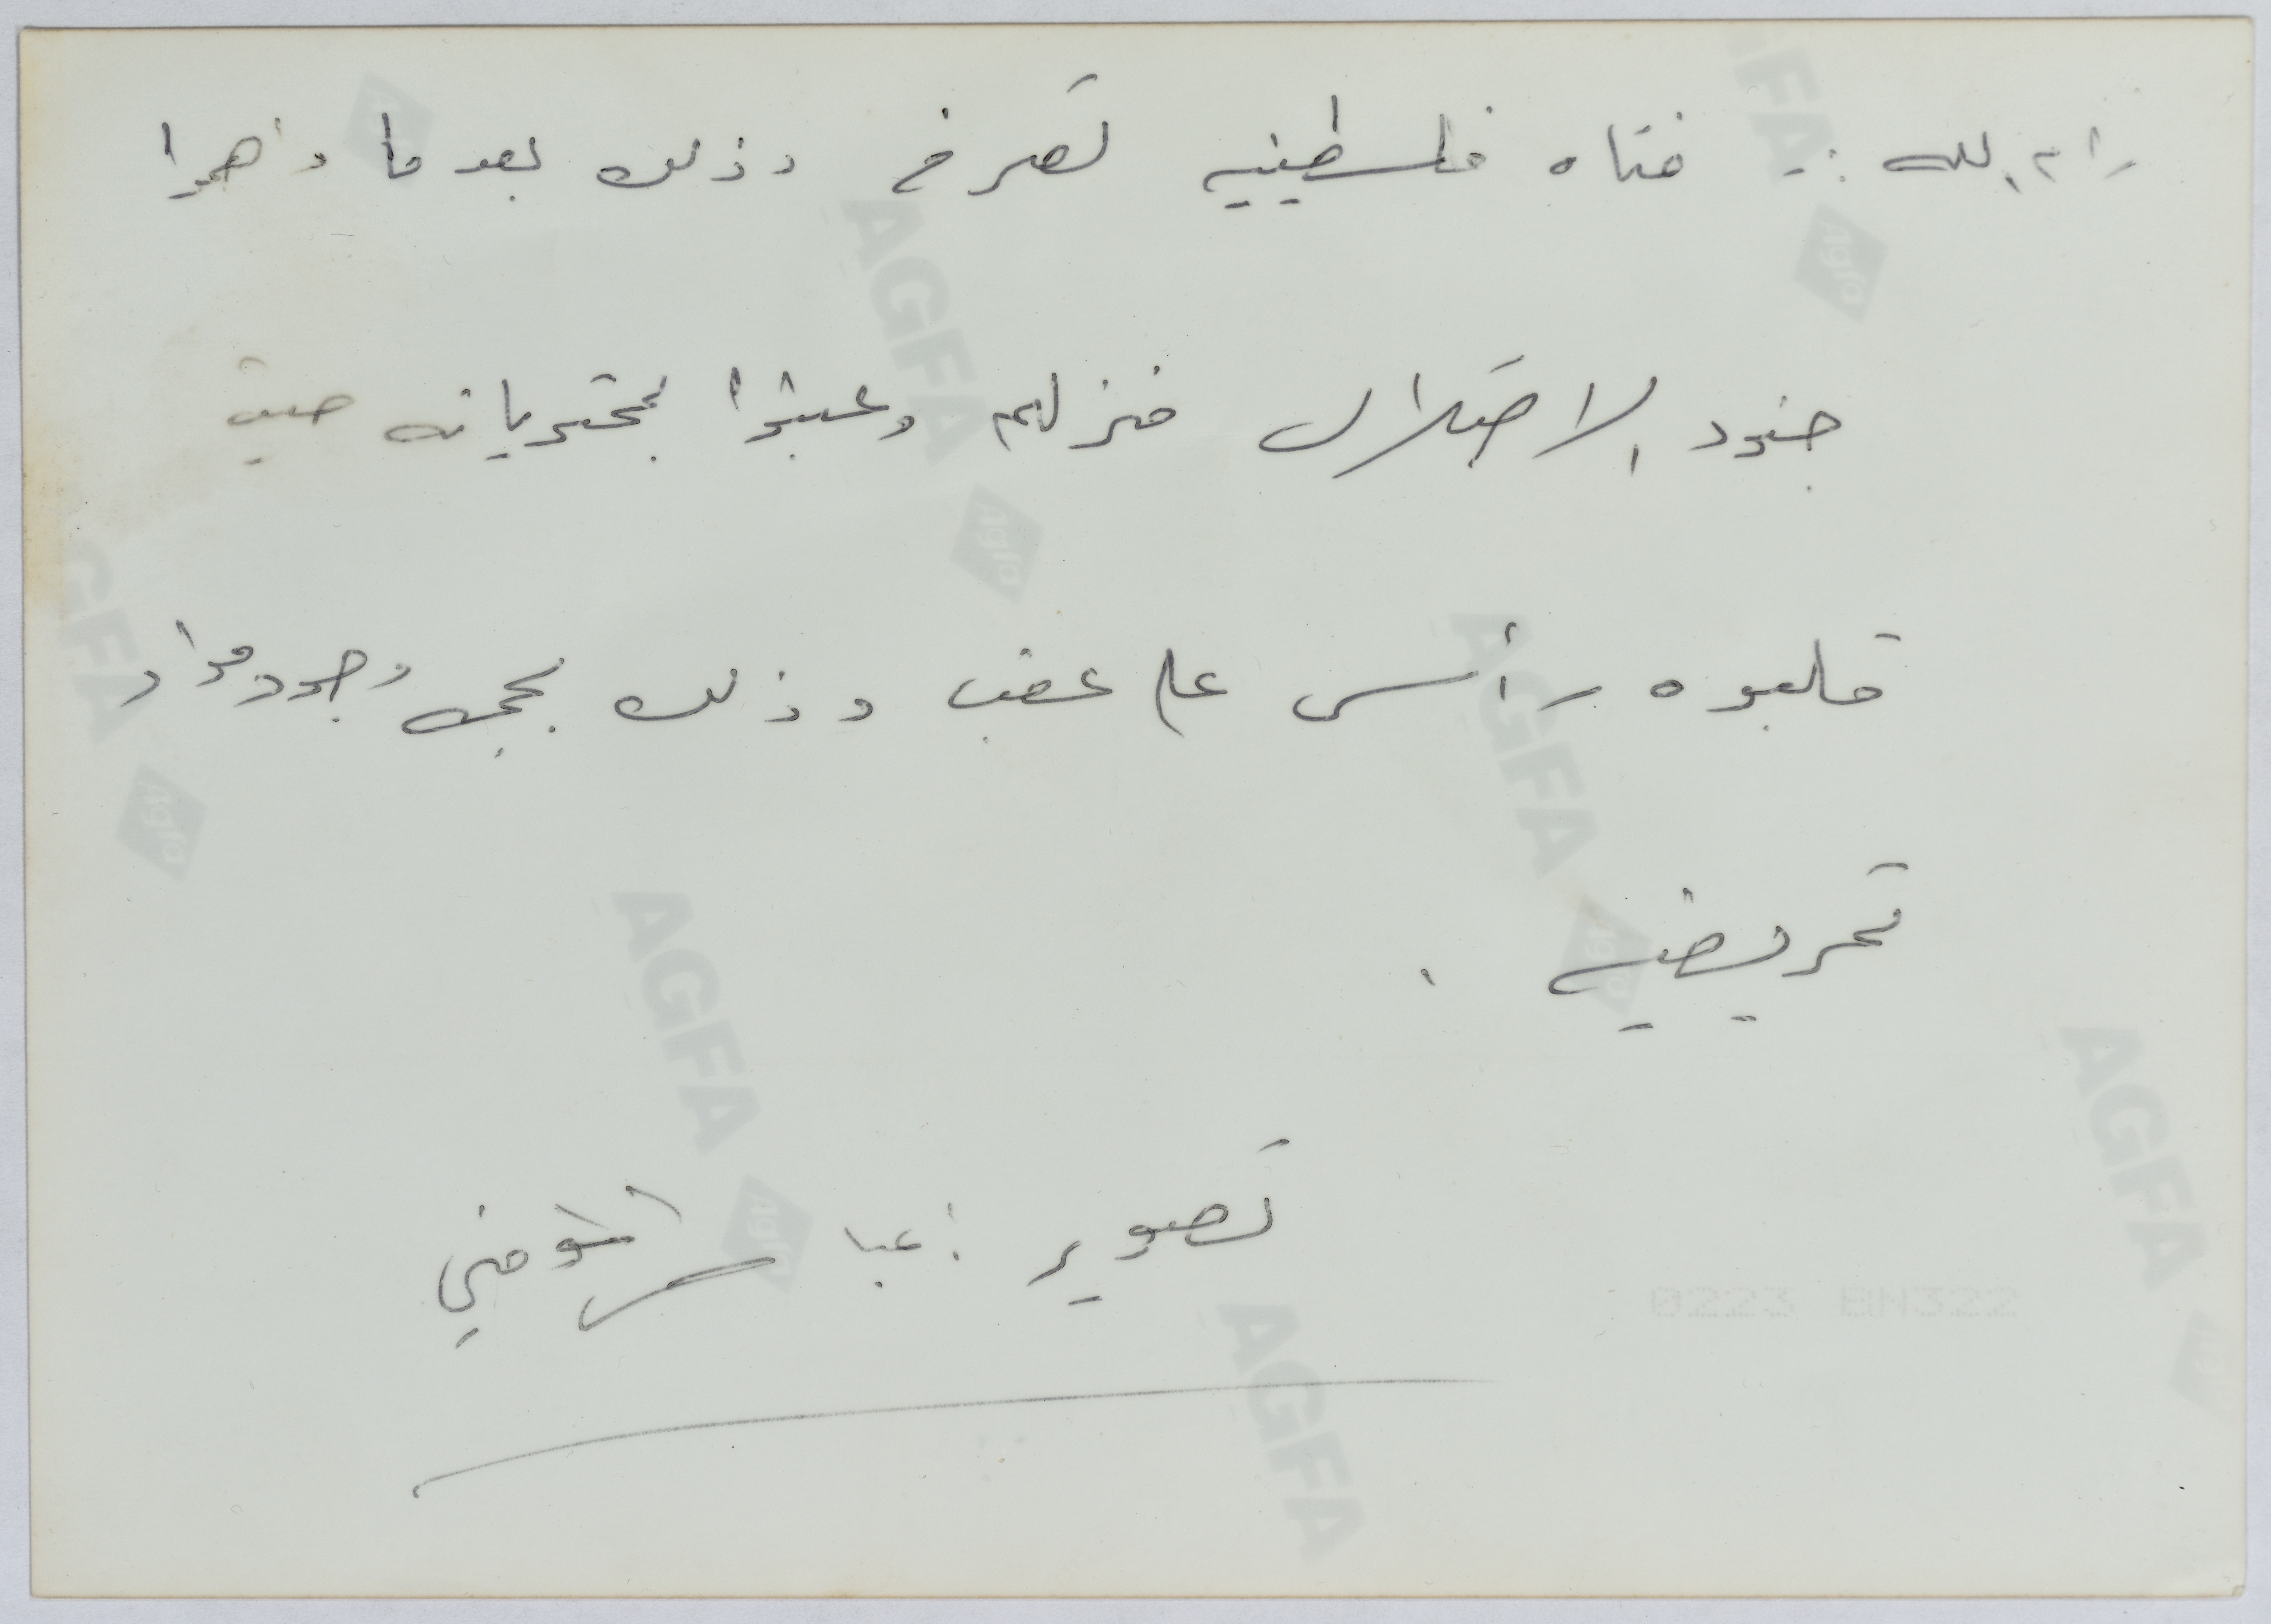 رام الله :- فتاه فلسطينيه تصرخ وذلك بعد ما داهموا
جنود الاحتلال منزلهم وعبثوا بمحتوياته حيث
قلبوه رأس على عقب وذلك بحجه وجود مواد
تحريضيه .
تصوير : عباس المومني
0223 BN322
AGFA
Agfa